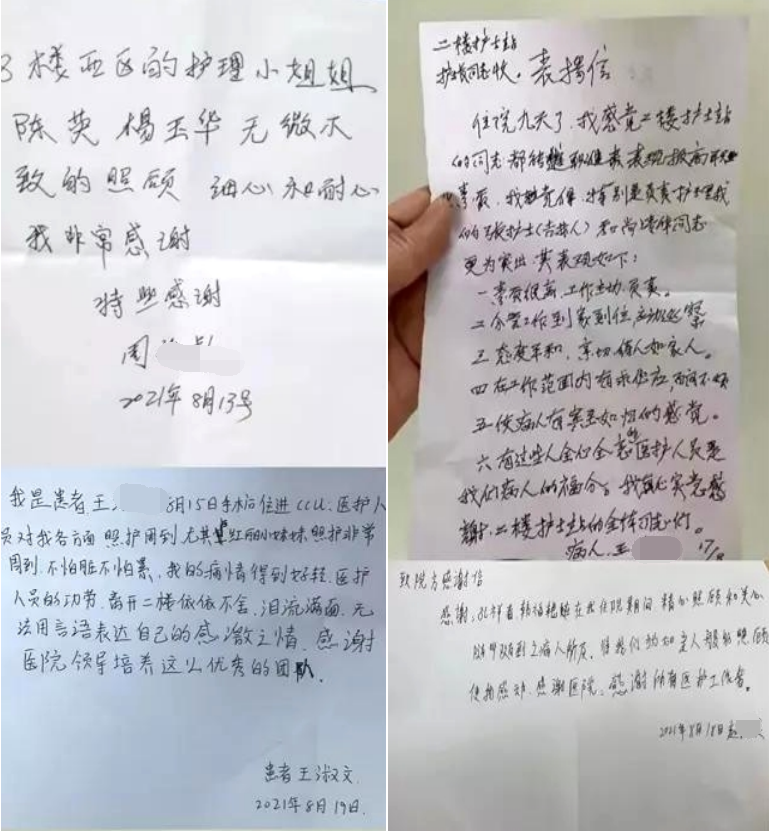 3楼西区的护理小姐姐
陈英 杨玉华 无微不
致的照顾 细心和耐心
我非常感谢
特此感谢
周
2021年8月13号
二楼护士站
护士长同志收. 表扬信
住院九天了, 我感觉二楼护士站
的同志都能
我 特别是负责护理我
的张护士(吉林人)和尚
更为突出. 其表现如下:
一 素质很高, 工作主动, 负责。
二 分管工作到家到位, 主动
三 态度平和, 亲切, 待人如家人。
四 在工作范围内有求必应,
五 使病人有宾至如归的感觉。
六 有这些人全心全意的医护人员是
我们病人的福分。我 实意感
謝. 二楼护士站的全体同志们。
病人. 王 17/8
我是患者王 8月15日手术后住进CCU. 医护人
员对我各方面照护周到尤其是红丽小妹妹照护非常
周到. 不怕脏不怕累, 我的病情得到好轻. 医护
人员的功劳. 离开二楼依依不舍. 泪流满面. 无
法用言语表达自己的感激之情. 感谢
医院领导培养这么优秀的团队.
患者王淑文
2021年8月19日.
致院方感谢信
感谢, 在我住院期间 精心照顾和关心
病人 照顾
使我感动. 感谢医院, 感谢所有医护工作者。
2021年8月18日